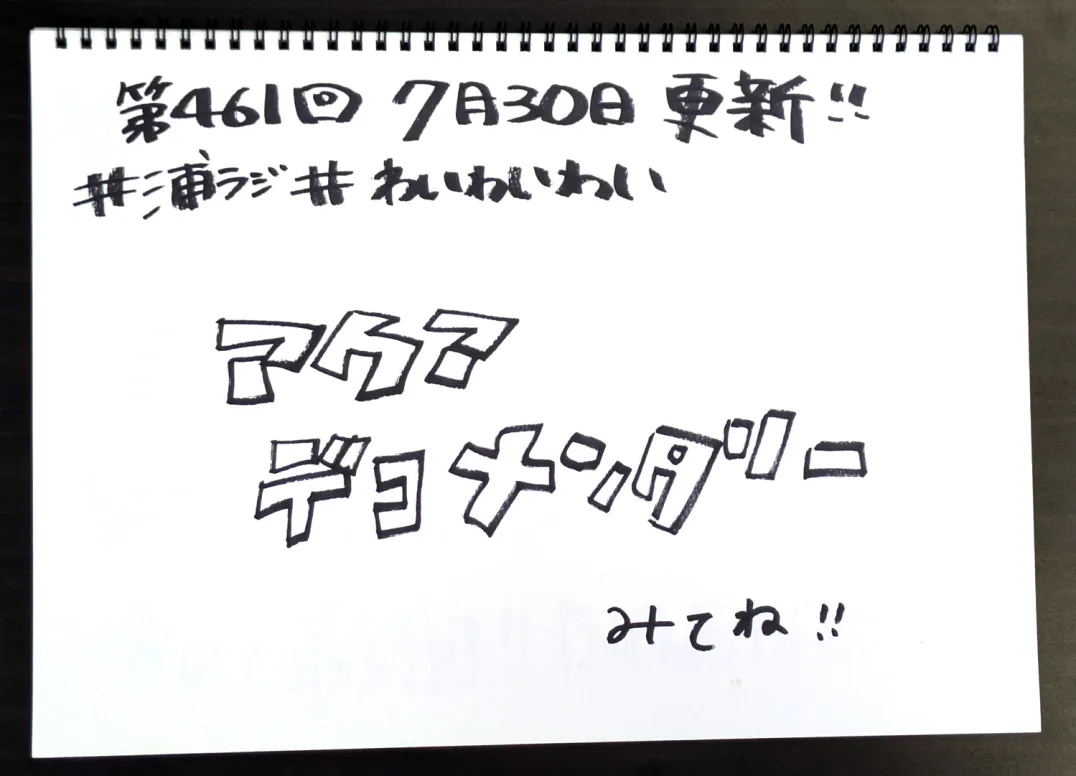 第461回 7月30日 更新!!
#浦ラジ#わいわいわい
アクア
デコメンタリー
みてね!!